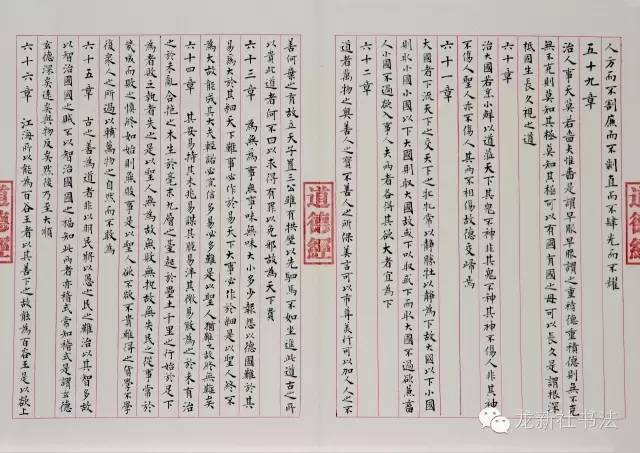 人方而不割廉而不劌直而不肆光而不耀
五十九章
治人事天莫若嗇夫惟嗇是謂早服早服謂之重積德重積德則無不克
無不克則莫知其極莫知其極可以有國有國之母可以長久是謂根深
柢固生長久視之道
六十章
治大國若烹小鮮以道莅天下其鬼不神非其鬼不神其神不傷人非其神
不傷人聖人亦不傷人夫兩不相傷故德交歸焉
六十一章
大國者下流天下之交天下之牝牝常以靜勝牡以靜為下故大國以下小國
則取小國小國以下大國則取大國故或下以取或下而取大國不過欲兼畜
人小國不過欲入事人夫兩者各得其欲大者宜為下
六十二章
道者萬物之奧善人之寶不善人之所保美言可以市尊美行可以加人人之不
善何棄之有故立天子置三公雖有拱璧以先駟馬不如坐進此道古之所
以貴此道者何不曰以求得有罪以免邪故為天下貴
六十三章 為無為事無事味無味大小多少報怨以德圖難於其
易為大於其細天下難事必作於易天下大事必作於細是以聖人終不
為大故能成其大夫輕諾必寡信多易必多難是以聖人猶難故終無難矣
六十四章 其安易持其未兆易謀其脆易泮其微易散為之於未有治
之於未亂合抱之木生於毫末九層之臺起於壘土千里之行始於足下
為者敗之執者失之是以聖人無為故無敗無執故無失民之從事常於
幾成而敗之慎終如始則無敗事是以聖人欲不欲不貴難得之貨學不學
復眾人之所過以輔萬物之自然而不敢為
六十五章 古之善為道者非以明民將以愚之民之難治以其智多故
以智治國國之賊不以智治國國之福知此兩者亦稽式常知稽式是謂玄德
玄德深矣遠矣與物反矣然後乃至大順
六十六章 江海所以能為百谷王者以其善下之故能為百谷王是以欲上
道德經
道德經
龙新社书法